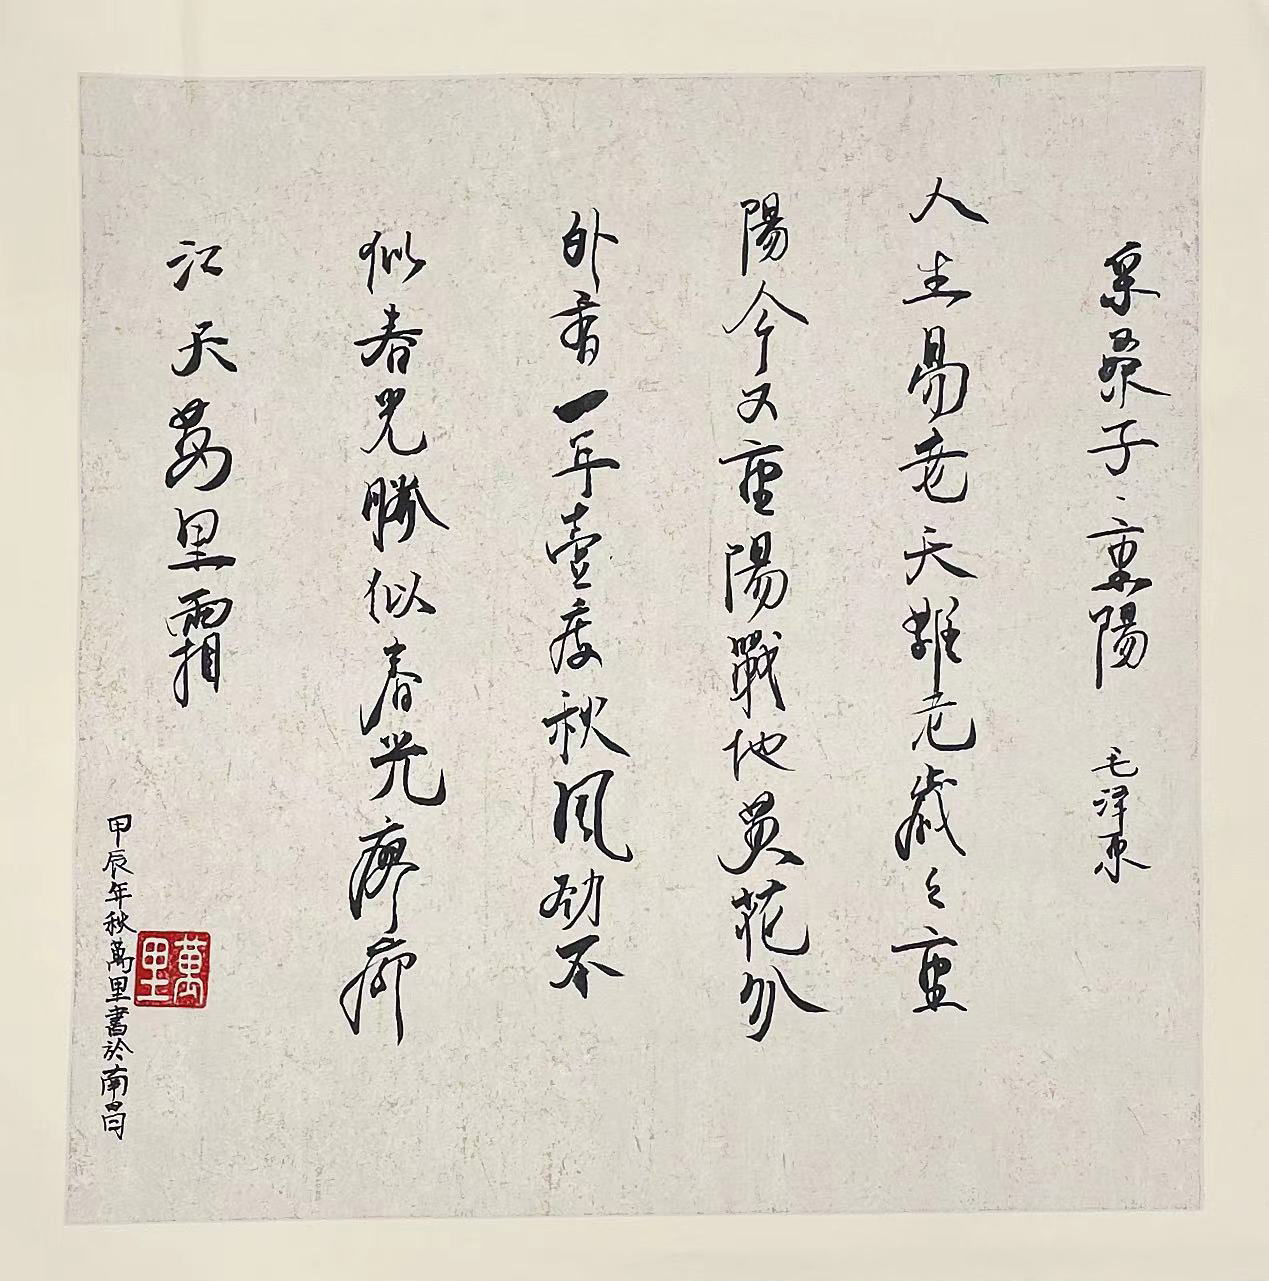 采桑子·重陽 毛泽东
人生易老天難老歲々重
陽今又重陽戰地黄花分
外香一年壹度秋風劲不
似春光勝似春光廖廓
江天萬里霜
甲辰年秋萬里書於南昌
萬里